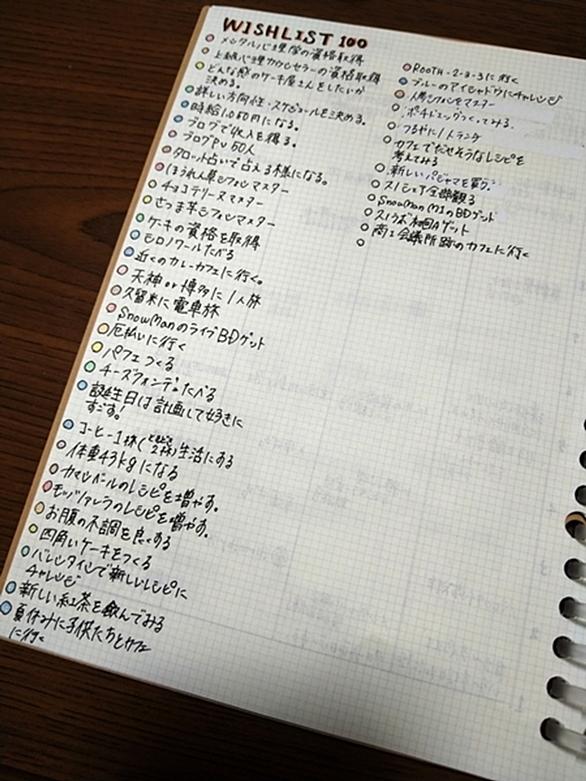 WISHLIST 100
メンタル心理学の資格取得
上級心理カウンセラーの資格取得
どんな感じのケーキ屋さんをしたいか
決める。
詳しい方向性・スケジュールを決める。
時給1,050円になる。
ブログで収入を得る。
ブログPV 50人
タロット占いで占える様になる。
ほうれん草シフォンマスター
チョコテリーヌマスター
さつま芋シフォンマスター
ケーキの資格を取得
シロノワールたべる
近くのカレーカフェに行く。
天神 or 博多に1人旅
久留米に電車旅
SnowManのライブBDゲット
厄払いに行く
パフェつくる
チーズフォンデュたべる
誕生日は計画して好きに
すごす!
コーヒー1杯(ときどき2杯)生活にする
体重43kgになる
カマンベールのレシピを増やす。
モッツァレラのレシピを増やす。
お腹の不調を良くする
四角いケーキをつくる
バレンタインで新しいレシピに
チャレンジ
新しい紅茶を飲んでみる
夏休みに子供たちとカフェ
に行く
ROOTH-2-3-3に行く
ブルーのアイシャドウにチャレンジ
人参シフォンをマスター
ポチ つくってみる
つるやに1人ランチ
カフェでだせそうなレシピを
考えてみる
新しいパジャマを買う。
スノシェア全部観る
SnowMan M1のBDゲット
スノラボ初回Aゲット
商工会議所跡のカフェに行く